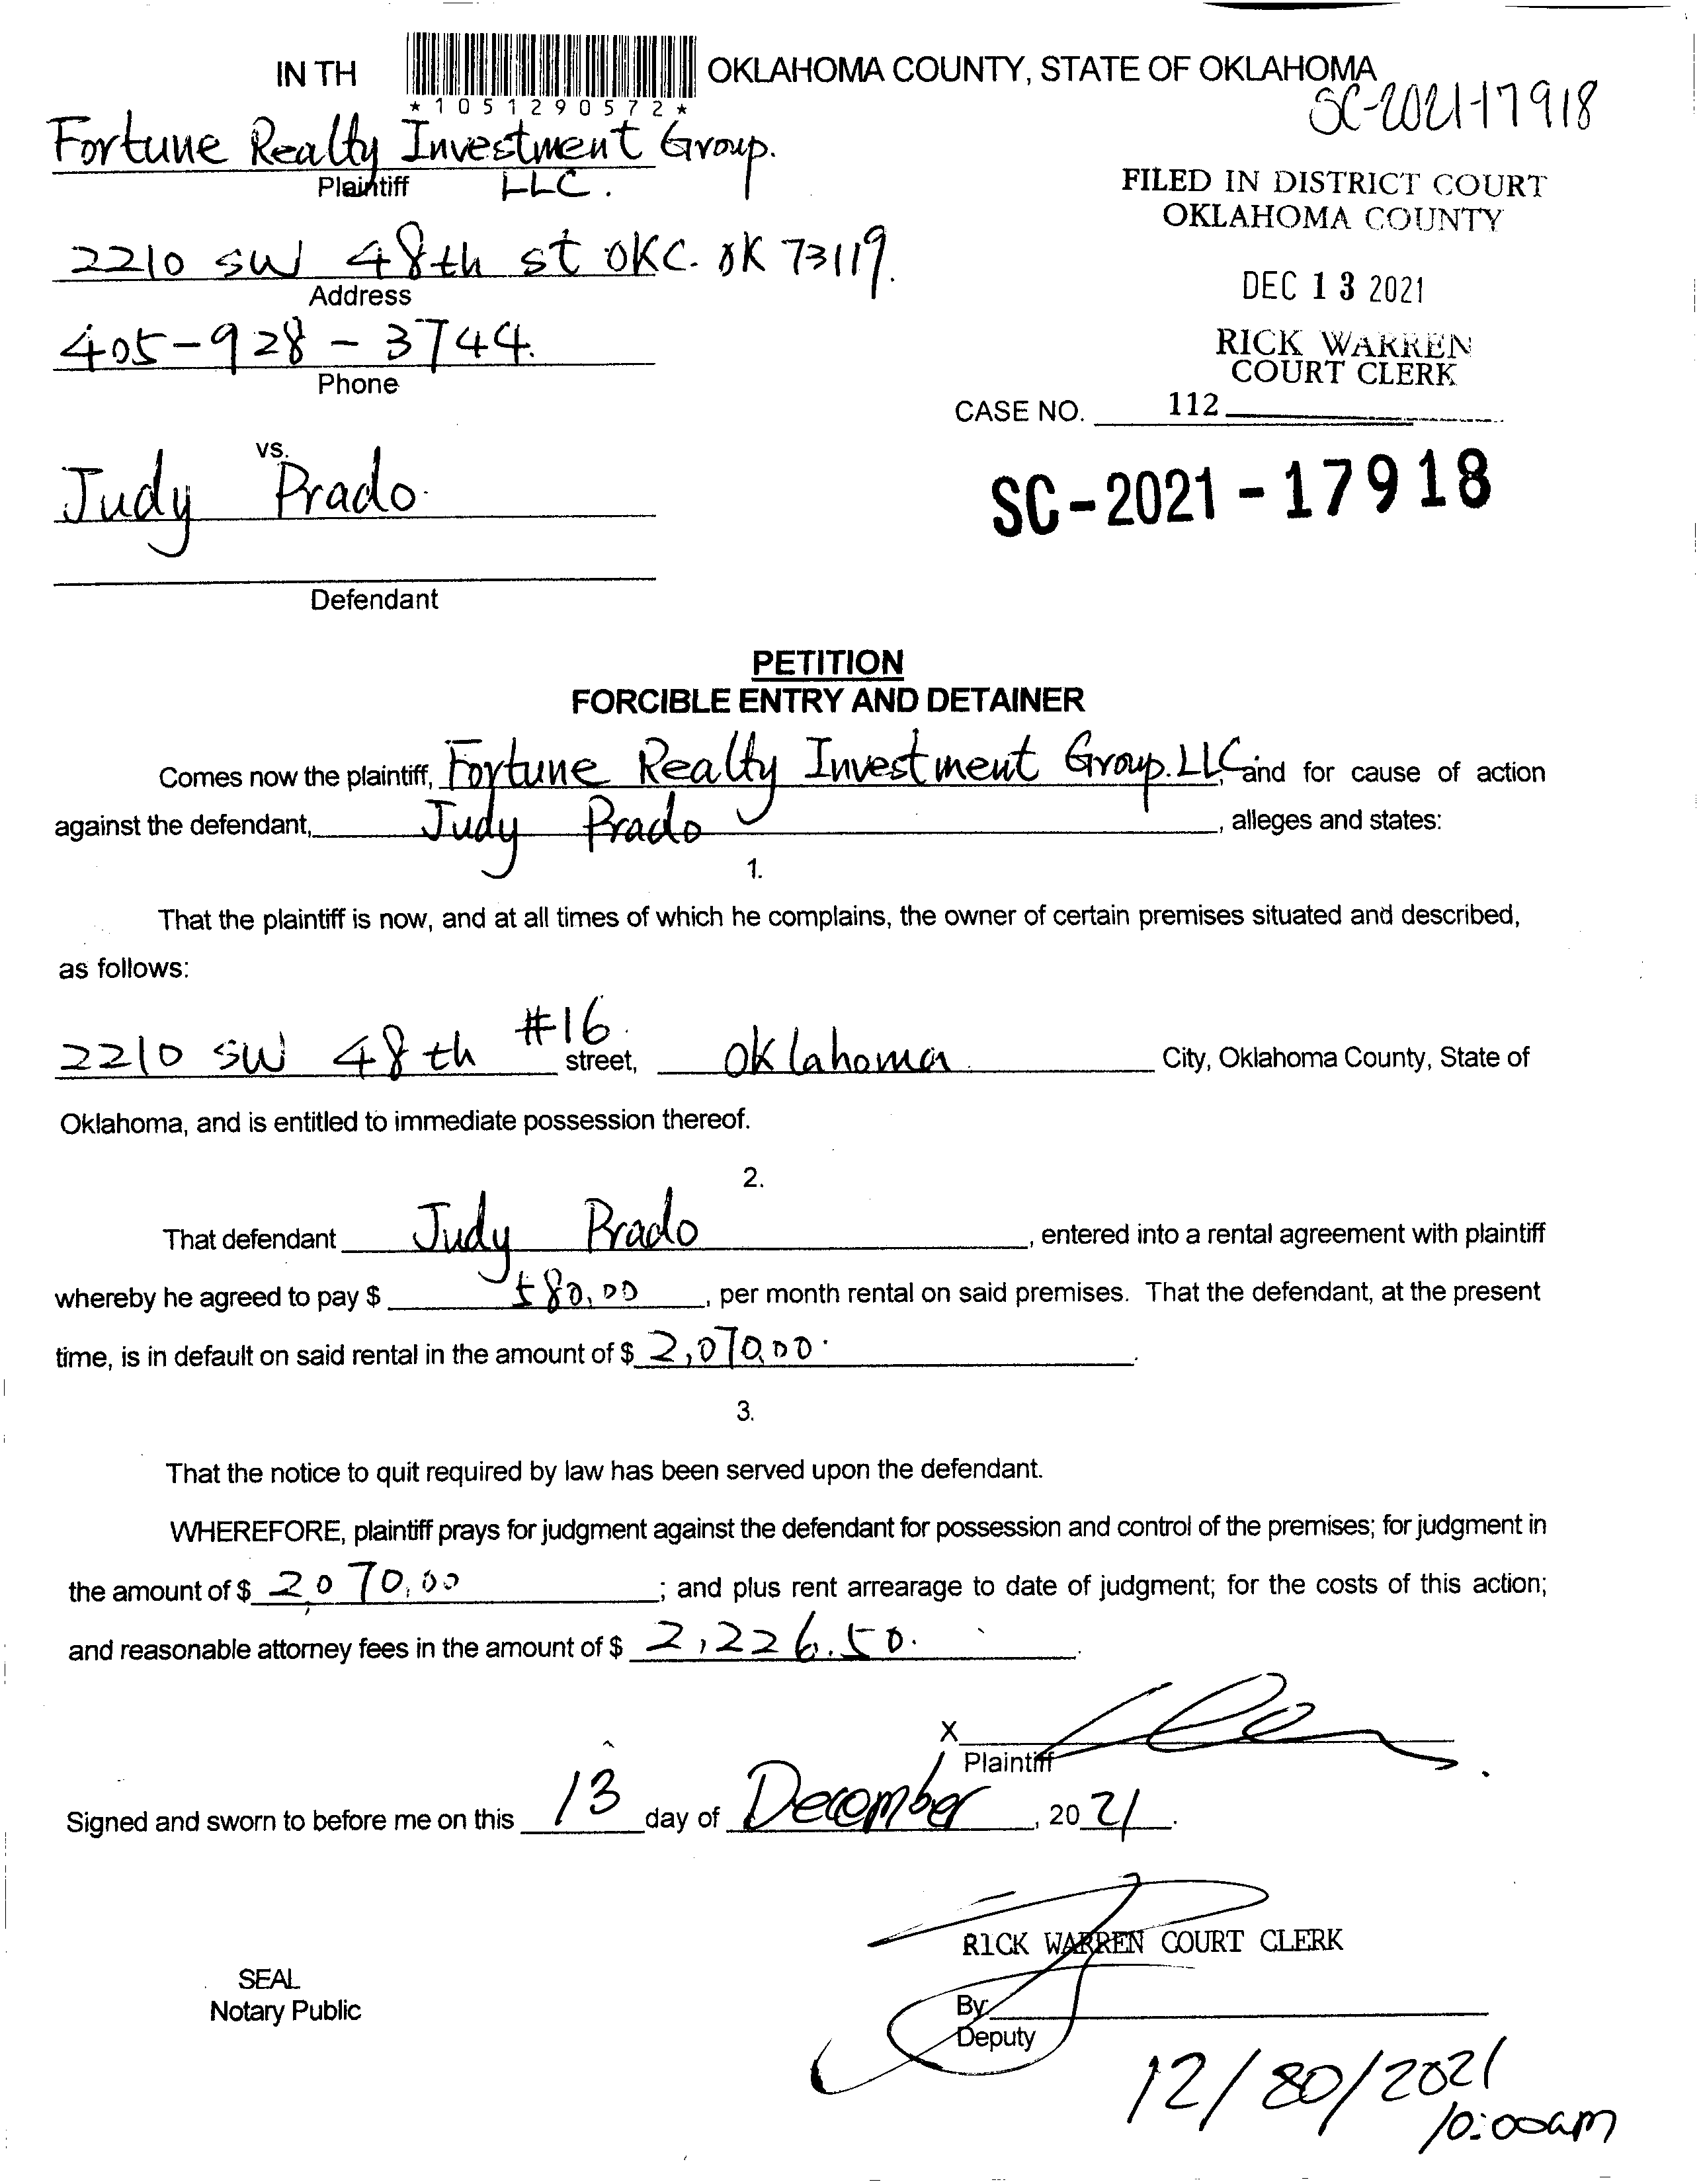 IN TH OKLAHOMA COUNTY, STATE OF OKLAHOMA
*1051290572*
SC-2021-17918
Fortune Realty Investment Group.
Plaintiff LLC.
FILED IN DISTRICT COURT
OKLAHOMA COUNTY
2210 SW 48th st OKC. OK 73119.
Address
DEC 13 2021
405-928-3744.
Phone
RICK WARREN
COURT CLERK
CASE NO. 112
vs.
Judy Prado.
SC-2021-17918
Defendant
PETITION
FORCIBLE ENTRY AND DETAINER
Comes now the plaintiff, Fortune Realty Investment Group. LLC, and for cause of action
against the defendant, Judy Prado, alleges and states:
1.
That the plaintiff is now, and at all times of which he complains, the owner of certain premises situated and described,
as follows:
2210 SW 48th #16. street, Oklahoma City, Oklahoma County, State of
Oklahoma, and is entitled to immediate possession thereof.
2.
That defendant Judy Prado, entered into a rental agreement with plaintiff
whereby he agreed to pay $ 580.00, per month rental on said premises. That the defendant, at the present
time, is in default on said rental in the amount of $ 2,070.00.
3.
That the notice to quit required by law has been served upon the defendant.
WHEREFORE, plaintiff prays for judgment against the defendant for possession and control of the premises; for judgment in
the amount of $ 2,070.00; and plus rent arrearage to date of judgment; for the costs of this action;
and reasonable attorney fees in the amount of $ 2,226.50.
X
Plaintiff
Signed and sworn to before me on this 13 day of December, 2021.
RICK WARREN COURT CLERK
SEAL
Notary Public
By:
Deputy
12/30/2021
10:00am